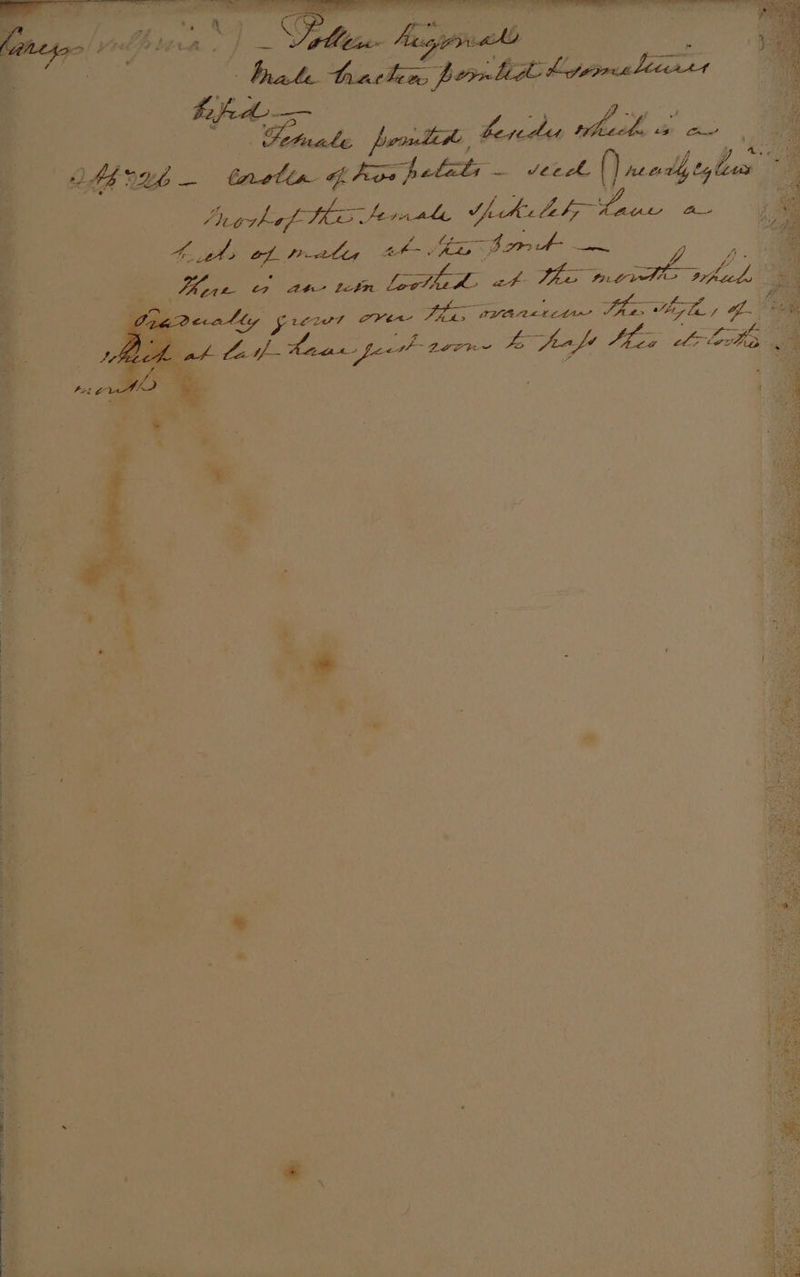 Carex (vulpina) _ Pollen trigonal
Male bractea pointed & sometimes
bifid —
Female pointed, besides which is an
— Corolla of two petals — seed () nearly
Most of the female Spikelets have a
tuft of males at the point —
There is an urn toothed at the mouth which
Gradually grows over the ovarium the style, of
which at last have just room to pass thro its toothed
mouth